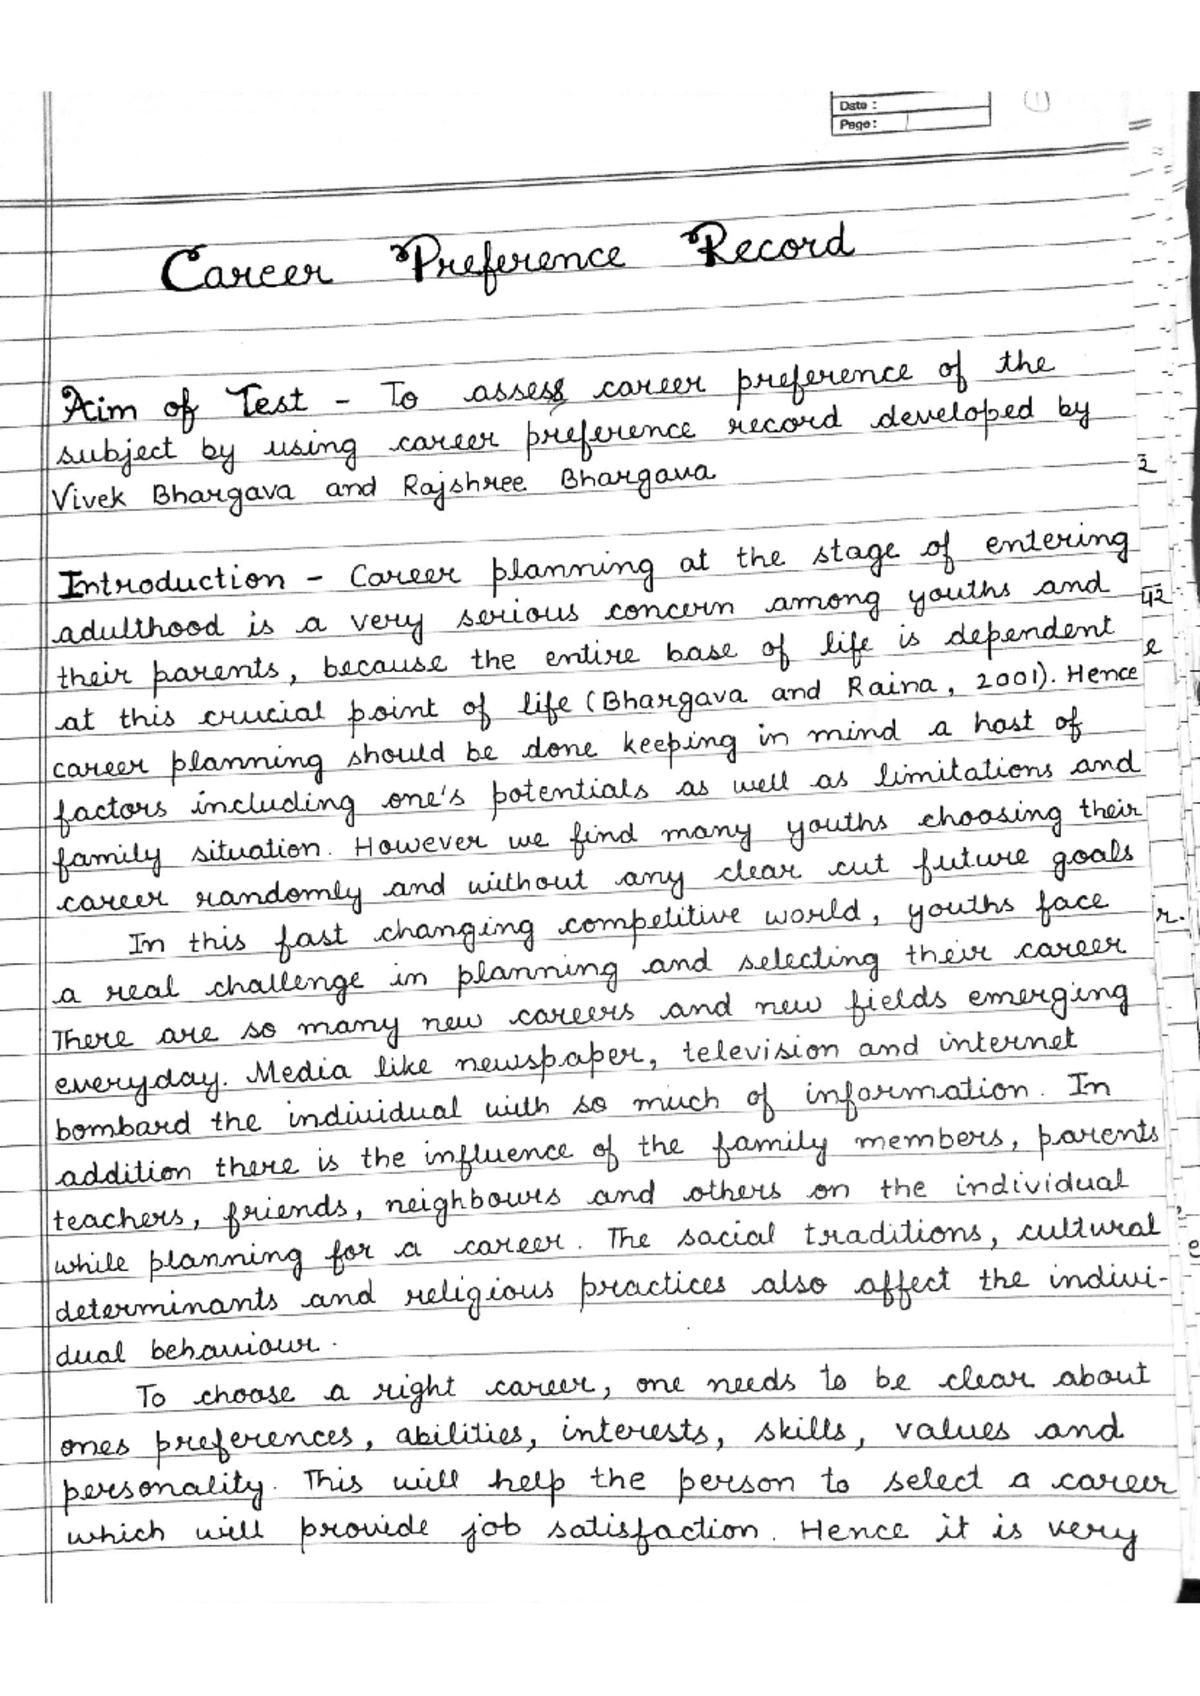 Date :
Page :
1
Career Preference Record
Aim of Test - To assess career preference of the
subject by using career preference record developed by
Vivek Bhargava and Rajshree Bhargava
Introduction - Career planning at the stage of entering
adulthood is a very serious concern among youths and
their parents, because the entire base of life is dependent
at this crucial point of life (Bhargava and Raina, 2001). Hence
career planning should be done keeping in mind a host of
factors including one's potentials as well as limitations and
family situation. However we find many youths choosing their
career randomly and without any clear cut future goals
In this fast changing competitive world, youths face
a real challenge in planning and selecting their career
There are so many new careers and new fields emerging
everyday. Media like newspaper, television and internet
bombard the individual with so much of information. In
addition there is the influence of the family members, parents
teachers, friends, neighbours and others on the individual
while planning for a career. The social traditions, cultural
determinants and religious practices also affect the indivi-
dual behaviour.
To choose a right career, one needs to be clear about
ones preferences, abilities, interests, skills, values and
personality. This will help the person to select a career
which will provide job satisfaction. Hence it is very